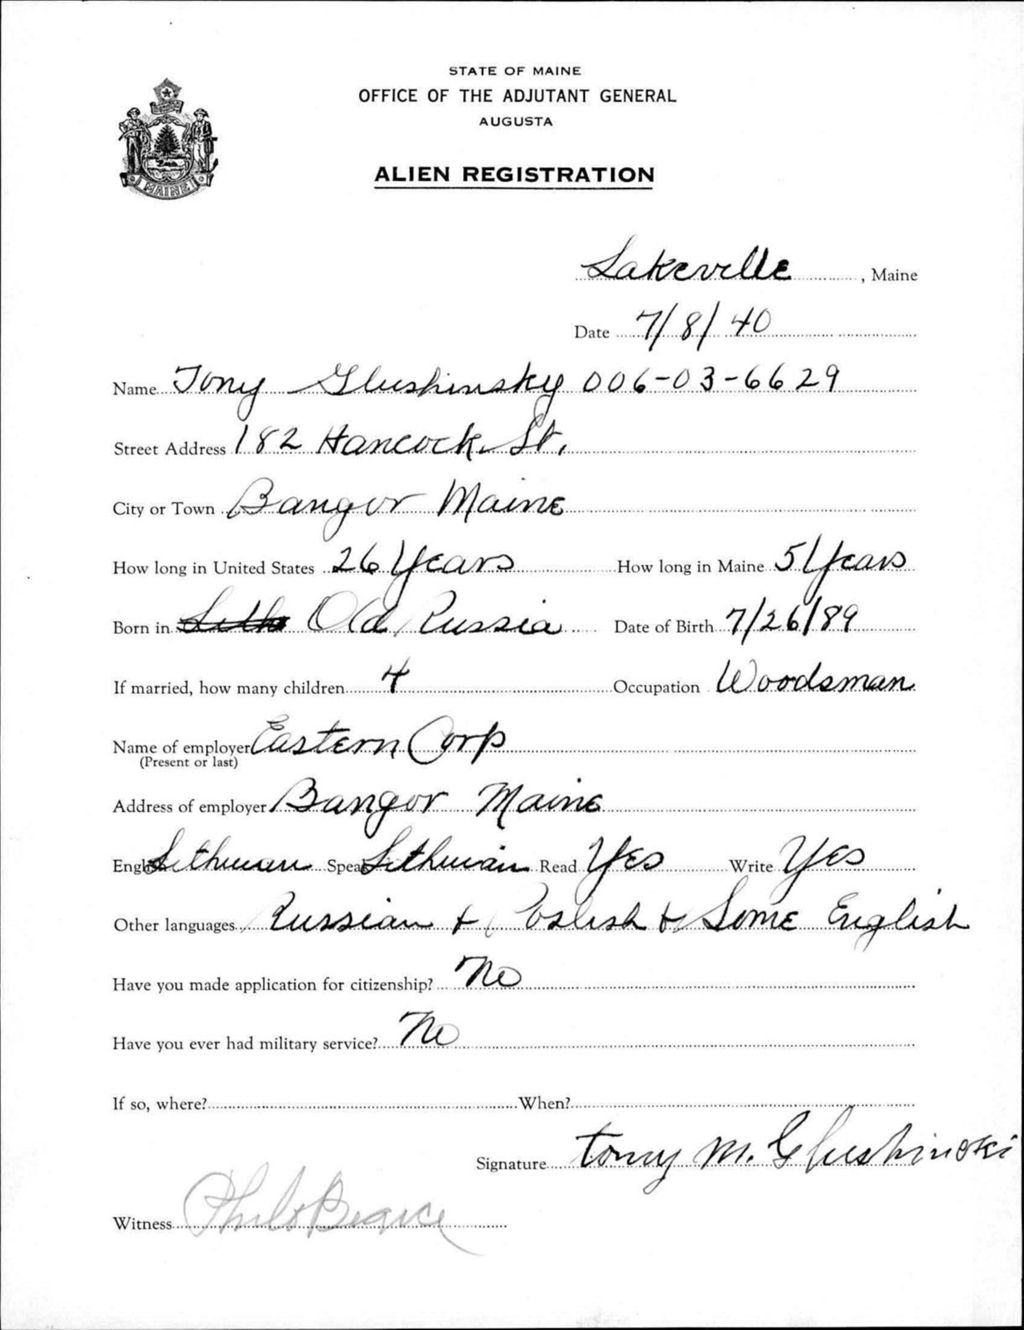 STATE OF MAINE
OFFICE OF THE ADJUTANT GENERAL
AUGUSTA
ALIEN REGISTRATION
MAINE
Lakeville, Maine
Date 7/8/40
Name Tony Glushinsky 006-03-6629
Street Address 182 Hancock St.
City or Town Bangor Maine
How long in United States 26 Years How long in Maine 5 Years
Born in Lith Old Russia Date of Birth 7/26/89
If married, how many children 4 Occupation Woodsman
Name of employer Eastern Corp
(Present or last)
Address of employer Bangor Maine
English Lithuian Speak Lithuian Read Yes Write Yes
Other languages Russian + Poslish + Some English
Have you made application for citizenship? No
Have you ever had military service? No
If so, where? When?
Signature Tony M. Glushinski
Witness Philo Pearce